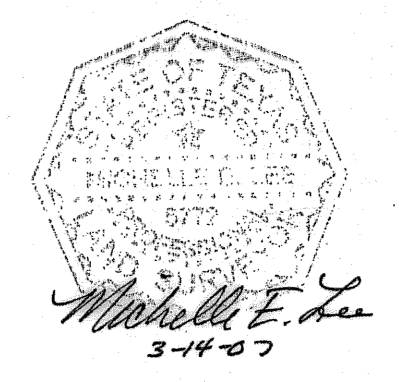 STATE OF TEXAS
REGISTERED
MICHELLE E. LEE
5772
PROFESSIONAL
LAND SURVEYOR
Michelle E. Lee
3-14-07